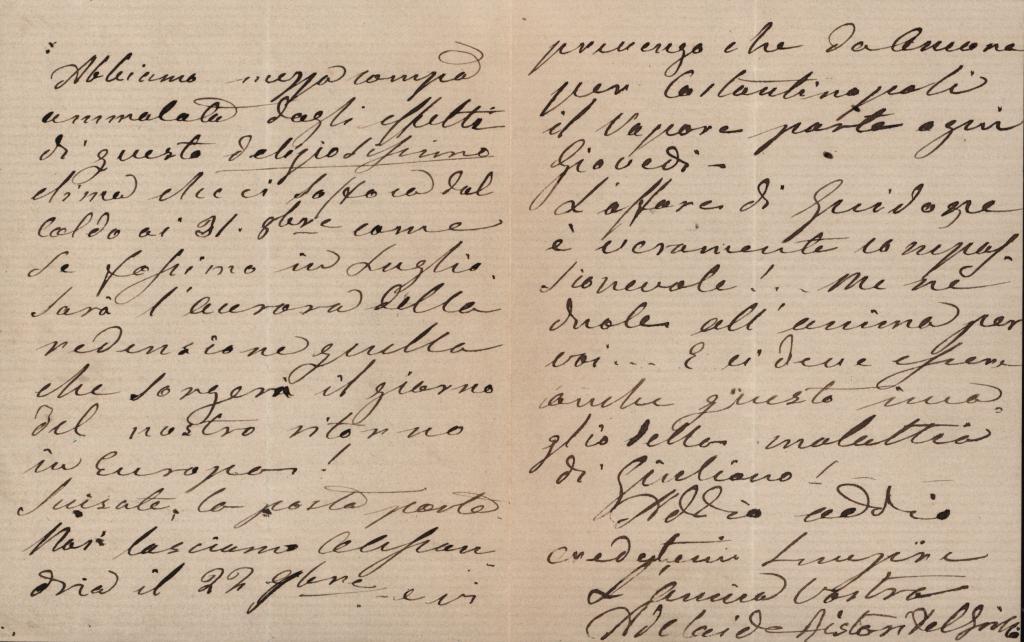 Abbiamo mezza compa
ammalata dagli effetti
di questo deliziosissimo
clima che ci soffoca dal
caldo ai 31. 8bre come
se fossimo in Luglio.
Sarà l'aurora della
redenzione quella
che sorgerà il giorno
del nostro ritorno
in Europa!
Scusate, la posta parte.
Noi lasciamo Alessan
dria il 22 9bre e vi
prevengo che da Ancona
per Costantinopoli
il Vapore parte ogni
Giovedì -
L'affare di Guidone
è veramente compas-
sionevole!... Me ne
duole all'anima per
voi... E ci deve essere
anche questo
della malattia
di Giuliano!
Addio addio
credetemi sempre
L'amica Vostra
Adelaide Ristori Del Grillo